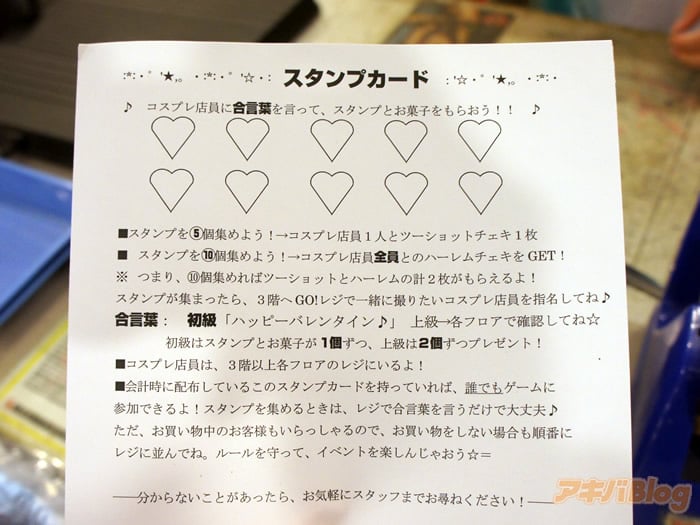 :*:・゜'★,。・:*:・゜'☆・: スタンプカード :'☆・゜'★,。・:*:・
♪ コスプレ店員に合言葉を言って、スタンプとお菓子をもらおう!! ♪
■スタンプを⑤個集めよう!→コスプレ店員1人とツーショットチェキ1枚
■ スタンプを⑩個集めよう!→コスプレ店員全員とのハーレムチェキをGET!
※ つまり、⑩個集めればツーショットとハーレムの計2枚がもらえるよ!
スタンプが集まったら、3階へGO!レジで一緒に撮りたいコスプレ店員を指名してね♪
合言葉: 初級「ハッピーバレンタイン♪」 上級→各フロアで確認してね☆
初級はスタンプとお菓子が1個ずつ、上級は2個ずつプレゼント!
■コスプレ店員は、3階以上各フロアのレジにいるよ!
■会計時に配布しているこのスタンプカードを持っていれば、誰でもゲームに
参加できるよ!スタンプを集めるときは、レジで合言葉を言うだけで大丈夫♪
ただ、お買い物中のお客様もいらっしゃるので、お買い物をしない場合も順番に
レジに並んでね。ルールを守って、イベントを楽しんじゃおう☆=
――分からないことがあったら、お気軽にスタッフまでお尋ねください!――
アキバBlog